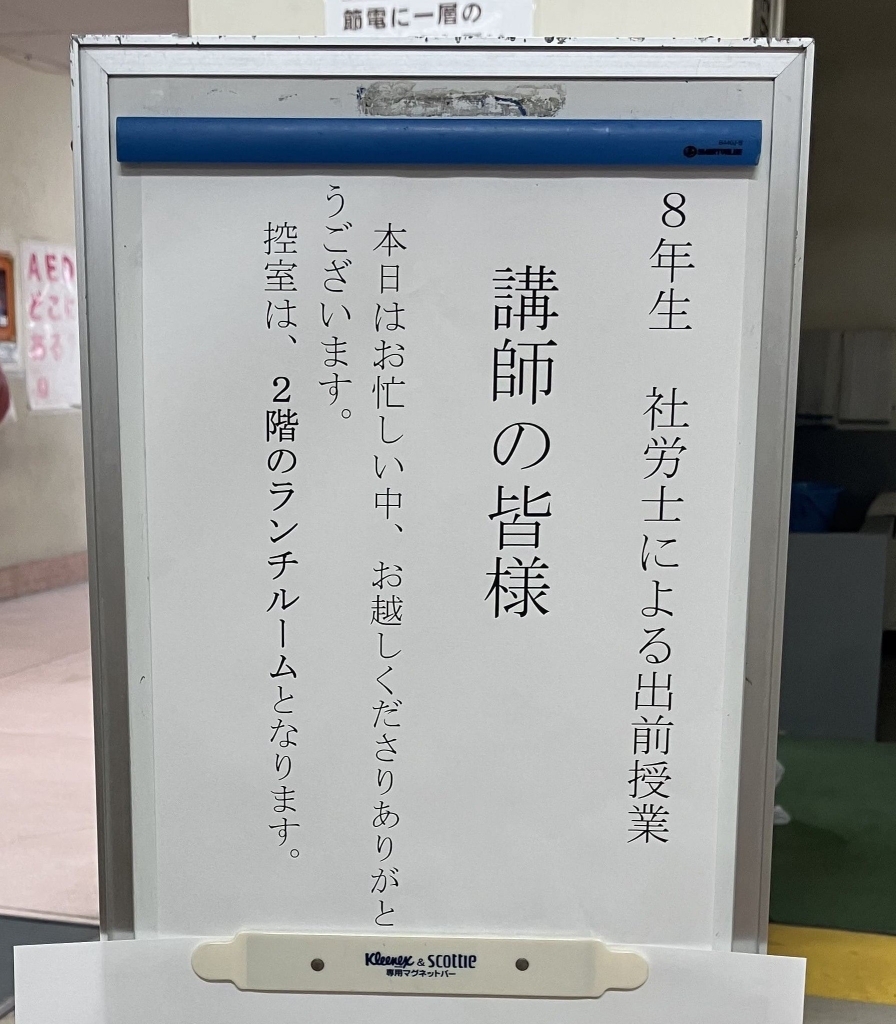 節電に一層の
8年生 社労士による出前授業
講師の皆様
本日はお忙しい中、お越しくださりありがと
うございます。
控室は、2階のランチルームとなります。
AED
どこに
ある
Kleenex & SCOTTIE
専用マグネットバー